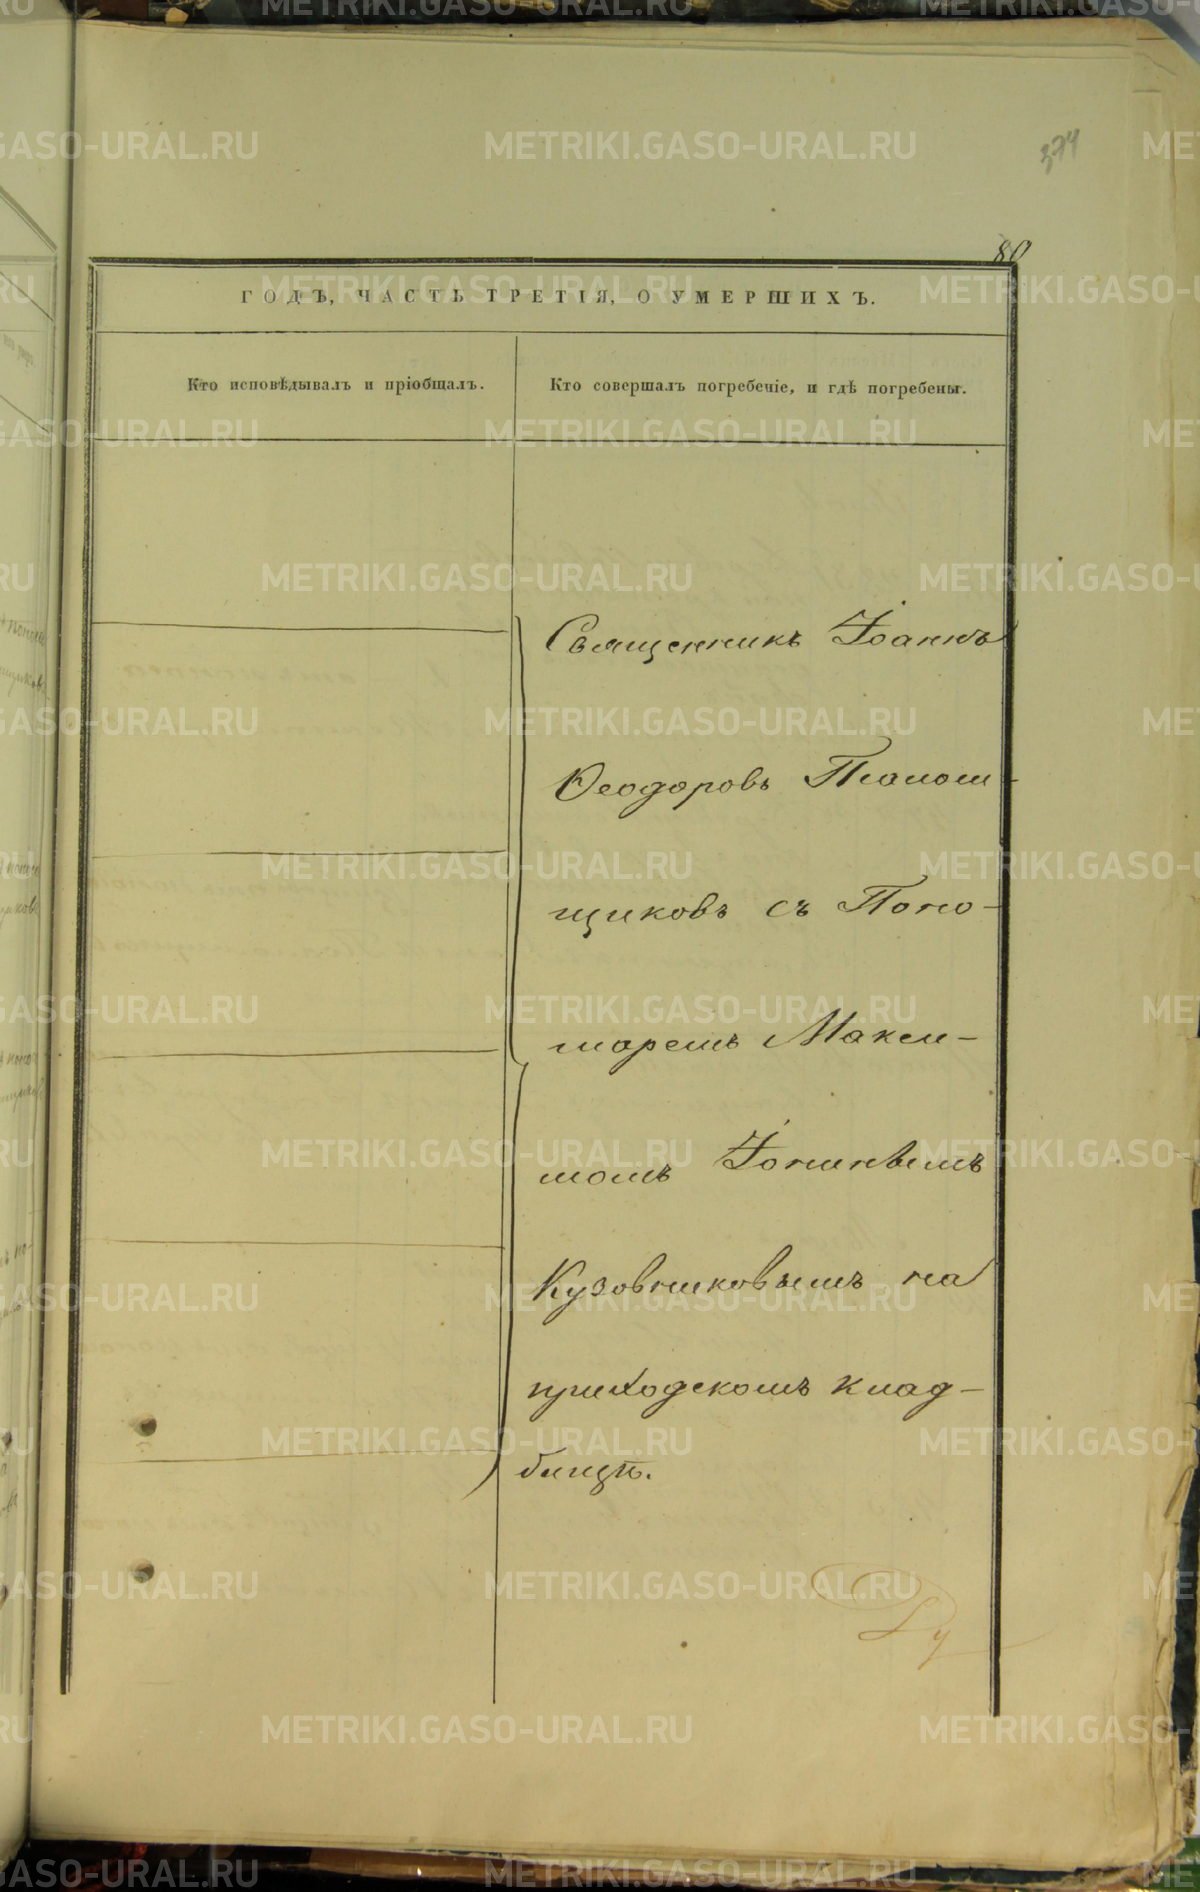 374
80
ГОДЪ, ЧАСТЬ ТРЕТІЯ, О УМЕРШИХЪ.
Кто исповѣдывалъ и пріобщалъ.
Кто совершалъ погребеніе, и гдѣ погребены.
Священникъ Іоаннъ
Ѳеодоровъ
щиковъ съ Поно-
маремъ Макси-
момъ
Кузовниковымъ на
приходскомъ клад-
бищѣ.
METRIKI.GASO-URAL.RU